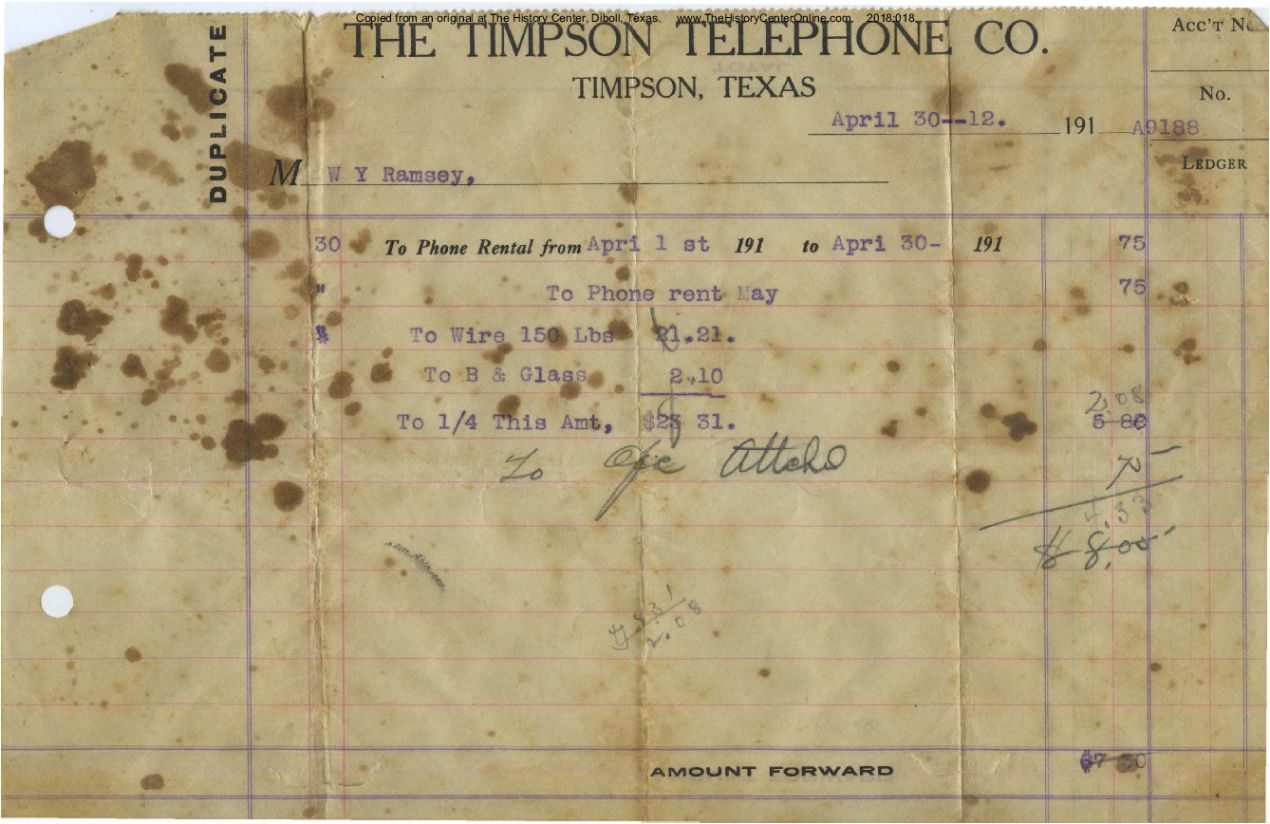 Copied from an original at The History Center, Diboll, Texas. www.TheHistoryCenterOnline.com 2018:018
DUPLICATE
THE TIMPSON TELEPHONE CO.
TIMPSON, TEXAS
Acc't No
No.
April 30--12. 191 A9188
LEDGER
M W Y Ramsey,
30 To Phone Rental from Apri 1 st 191 to Apri 30- 191 75
" To Phone rent May 75
To Wire 150 Lbs 21.21.
To B & Glass 2.10
2.08
To 1/4 This Amt, $23 31. 5 82
To Ofc Attchd 75
4.33
$ 8.00
4 831
2.08
AMOUNT FORWARD $7